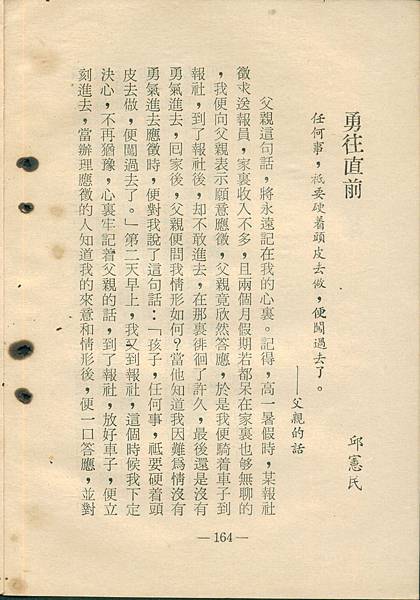 勇往直前
邱憲民
任何事，祇要硬着頭皮去做，便闖過去了。
——父親的話
父親這句話，將永遠記在我的心裏。記得，高一暑假時，某報社
徵求送報員，家裏收入不多，且兩個月假期若都呆在家裏也够無聊的
，我便向父親表示願意應徵，父親竟欣然答應，於是我便騎着車子到
報社，到了報社後，却不敢進去，在那裏徘徊了許久，最後還是沒有
勇氣進去，囘家後，父親便問我情形如何？當他知道我因難爲情沒有
勇氣進去應徵時，便對我說了這句話：「孩子，任何事，祇要硬着頭
皮去做，便闖過去了。」第二天早上，我又到報社，這個時候我下定
決心，不再猶豫，心裏牢記着父親的話，到了報社，放好車子，便立
刻進去，當辦理應徵的人知道我的來意和情形後，便一口答應，並對
—164—